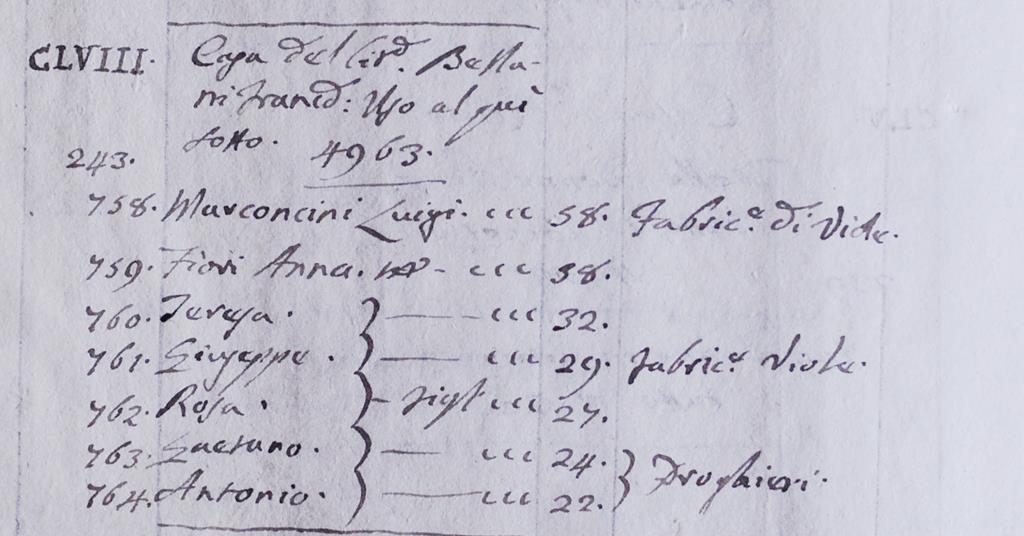 CLVIII. Casa del Citd. Bella-
ni Francd: Uso al più
sotto. 4963.
243.
758. Marconcini Luigi. 58. Fabric.e di Viole.
759. Fiori Anna. 58.
760. Teresa. 32.
761. Giuseppe. 29. fabric.e Viole.
762. Rosa. figl 27.
763. Gaetano. 24.
764. Antonio. 22. Droghieri.